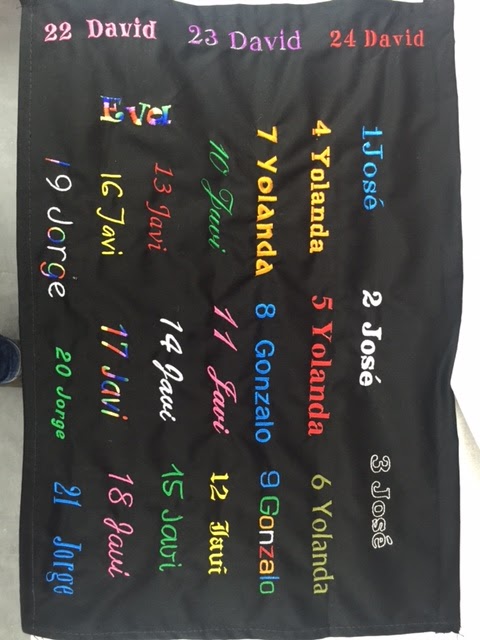 1 José
2 José
3 José
4 Yolanda
5 Yolanda
6 Yolanda
7 Yolanda
8 Gonzalo
9 Gonzalo
10 Javi
11 Javi
12 Javi
13 Javi
14 Javi
15 Javi
16 Javi
17 Javi
18 Javi
19 Jorge
20 Jorge
21 Jorge
22 David
23 David
24 David
Eva